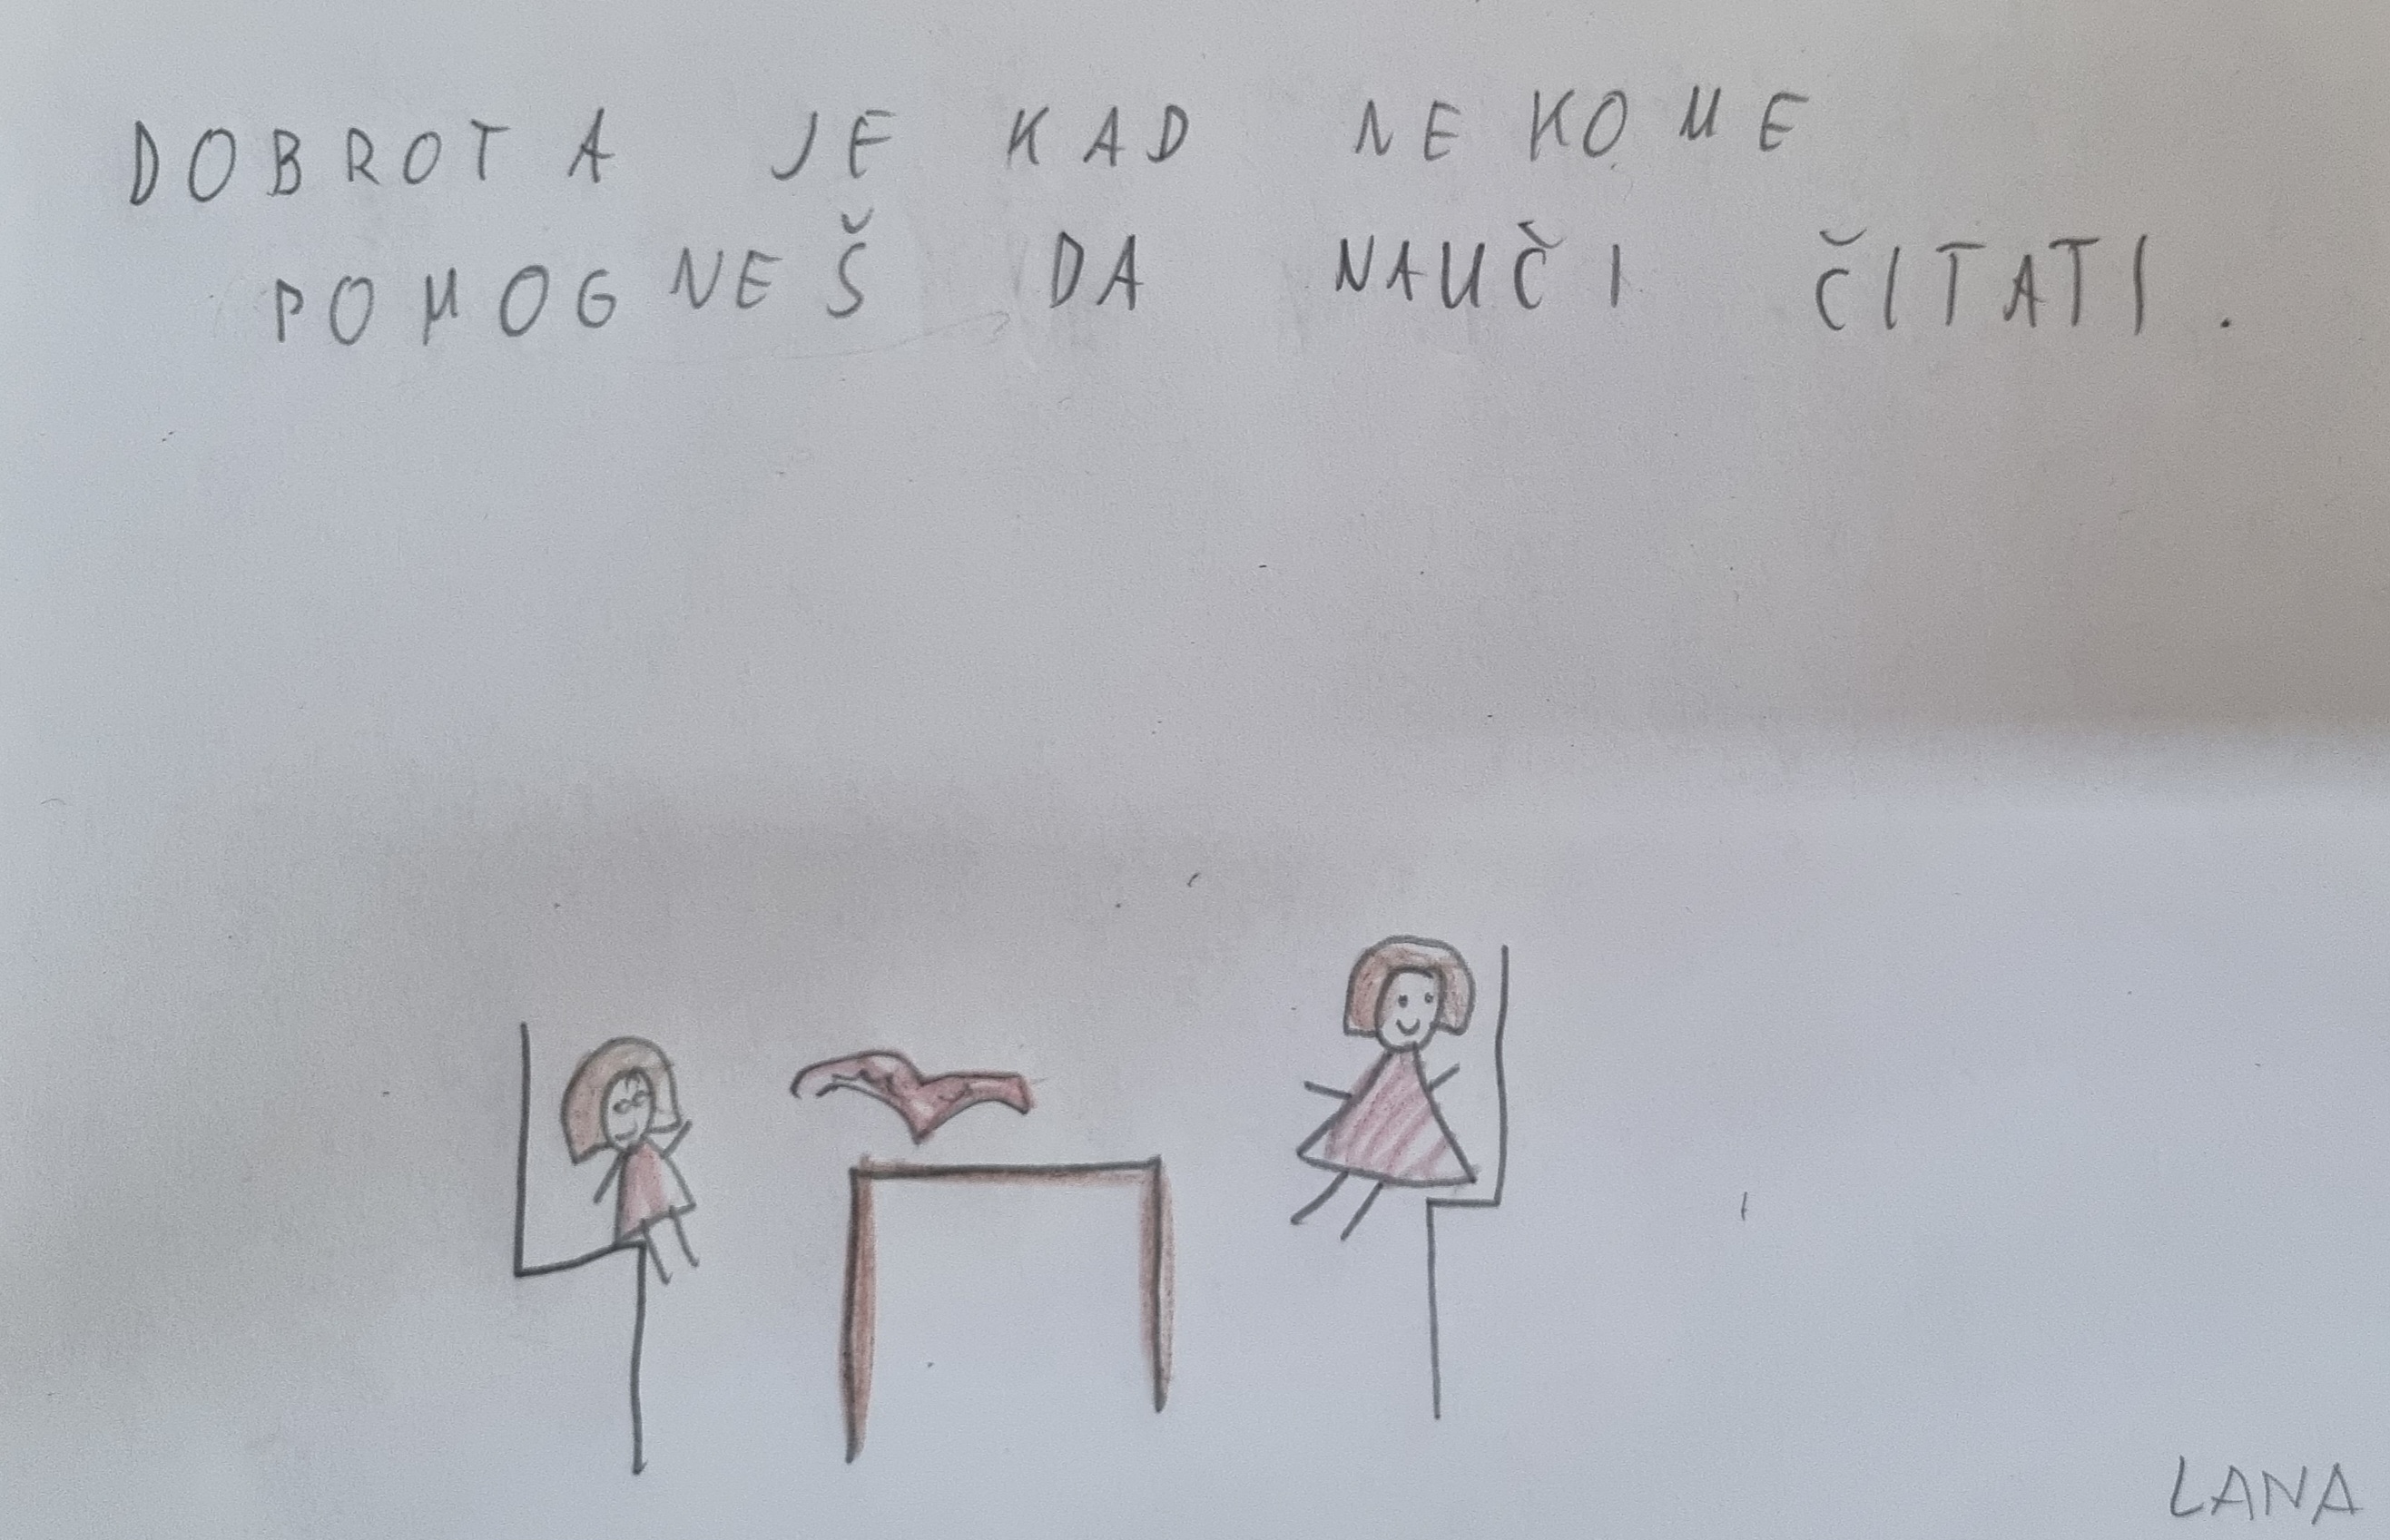 DOBROTA JE KAD NEKOME
POMOGNEŠ DA NAUČI ČITATI.
LANA